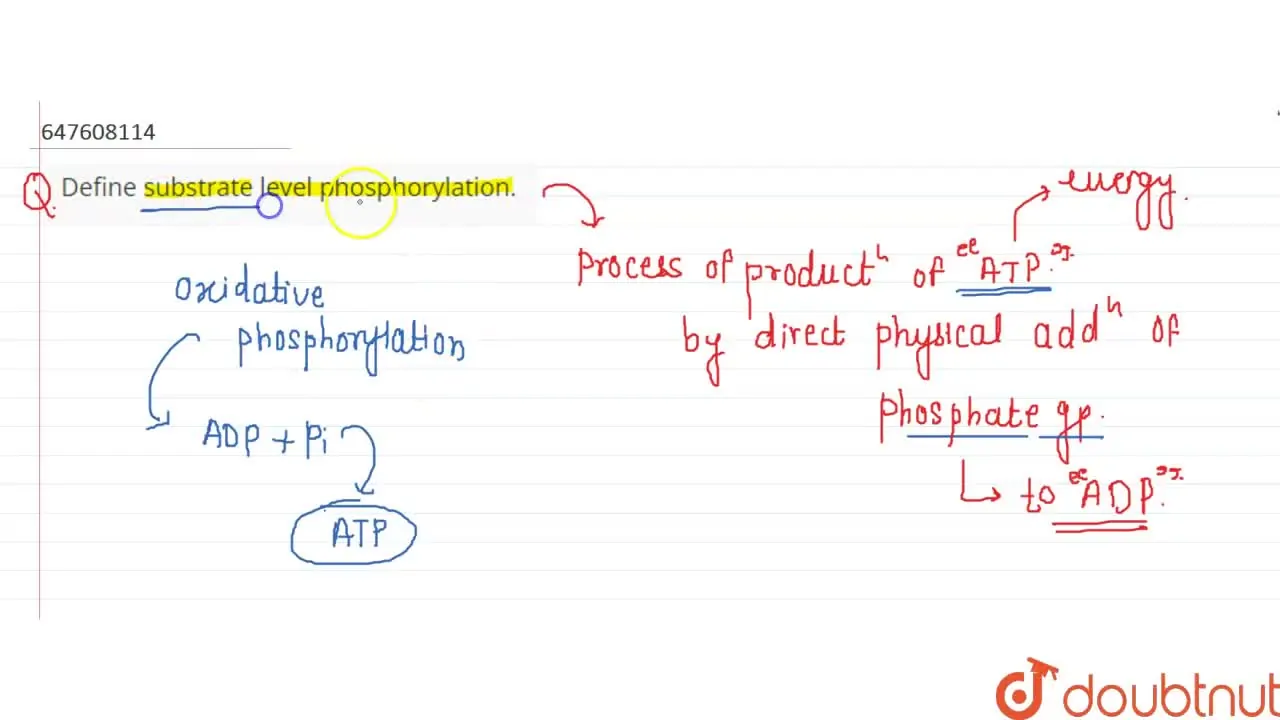 647608114
Q. Define substrate level phosphorylation.
energy.
Process of productⁿ of "ATP".
by direct physical addⁿ of
phosphate gp.
to "ADP".
oxidative
phosphorylation
ADP + Pi
ATP
doubtnut